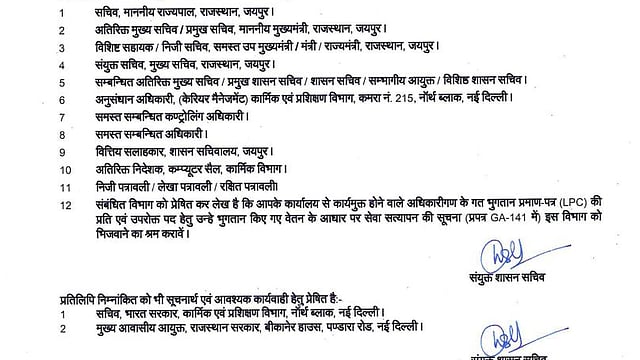 1 सचिव, माननीय राज्यपाल, राजस्थान, जयपुर।
2 अतिरिक्त मुख्य सचिव / प्रमुख सचिव, माननीय मुख्यमंत्री, राजस्थान, जयपुर।
3 विशिष्ट सहायक / निजी सचिव, समस्त उप मुख्यमंत्री / मंत्री / राज्यमंत्री, राजस्थान, जयपुर।
4 संयुक्त सचिव, मुख्य सचिव, राजस्थान, जयपुर।
5 सम्बन्धित अतिरिक्त मुख्य सचिव / प्रमुख शासन सचिव / शासन सचिव / सम्भागीय आयुक्त / विशिष्ठ शासन सचिव।
6 अनुसंधान अधिकारी, (केरियर मैनेजमेंट) कार्मिक एवं प्रशिक्षण विभाग, कमरा नं. 215, नॉर्थ ब्लाक, नई दिल्ली।
7 समस्त सम्बन्धित कण्ट्रोलिंग अधिकारी।
8 समस्त सम्बन्धित अधिकारी।
9 वित्तिय सलाहकार, शासन सचिवालय, जयपुर।
10 अतिरिक्त निदेशक, कम्प्यूटर सैल, कार्मिक विभाग।
11 निजी पत्रावली / लेखा पत्रावली / रक्षित पत्रावली।
12 संबंधित विभाग को प्रेषित कर लेख है कि आपके कार्यालय से कार्यमुक्त होने वाले अधिकारीगण के गत भुगतान प्रमाण-पत्र (LPC) की
प्रति एवं उपरोक्त पद हेतु उन्हे भुगतान किए गए वेतन के आधार पर सेवा सत्यापन की सूचना (प्रपत्र GA-141 में) इस विभाग को
भिजवाने का श्रम करावें।
संयुक्त शासन सचिव
प्रतिलिपि निम्नांकित को भी सूचनार्थ एवं आवश्यक कार्यवाही हेतु प्रेषित है:-
1 सचिव, भारत सरकार, कार्मिक एवं प्रशिक्षण विभाग, नॉर्थ ब्लाक, नई दिल्ली।
2 मुख्य आवासीय आयुक्त, राजस्थान सरकार, बीकानेर हाउस, पण्डारा रोड, नई दिल्ली।
संयुक्त शासन सचिव